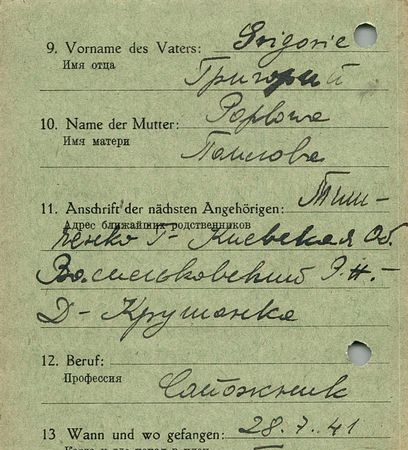 9. Vorname des Vaters: Grigorie
Имя отца
Григорий
10. Name der Mutter: Poplowa
Имя матери
11. Anschrift der nächsten Angehörigen: Тими-
Адрес ближайших родственников
ченко Г- Киевская Об.
Васильковский Р.Н.-
Д- Крушанка
12. Beruf:
Профессия
Сапожник
13 Wann und wo gefangen: 28.7.41